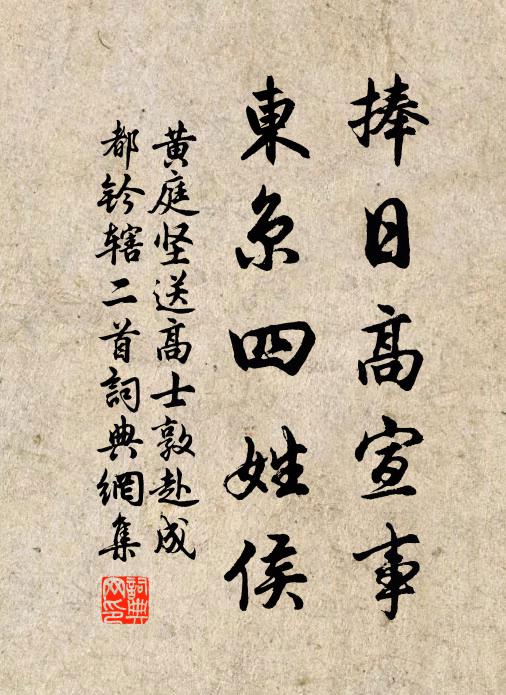 捧日高宣事
東京四姓侯
黄庭坚送高士敦赴成
都钤辖二首詞典網集
詞典網印